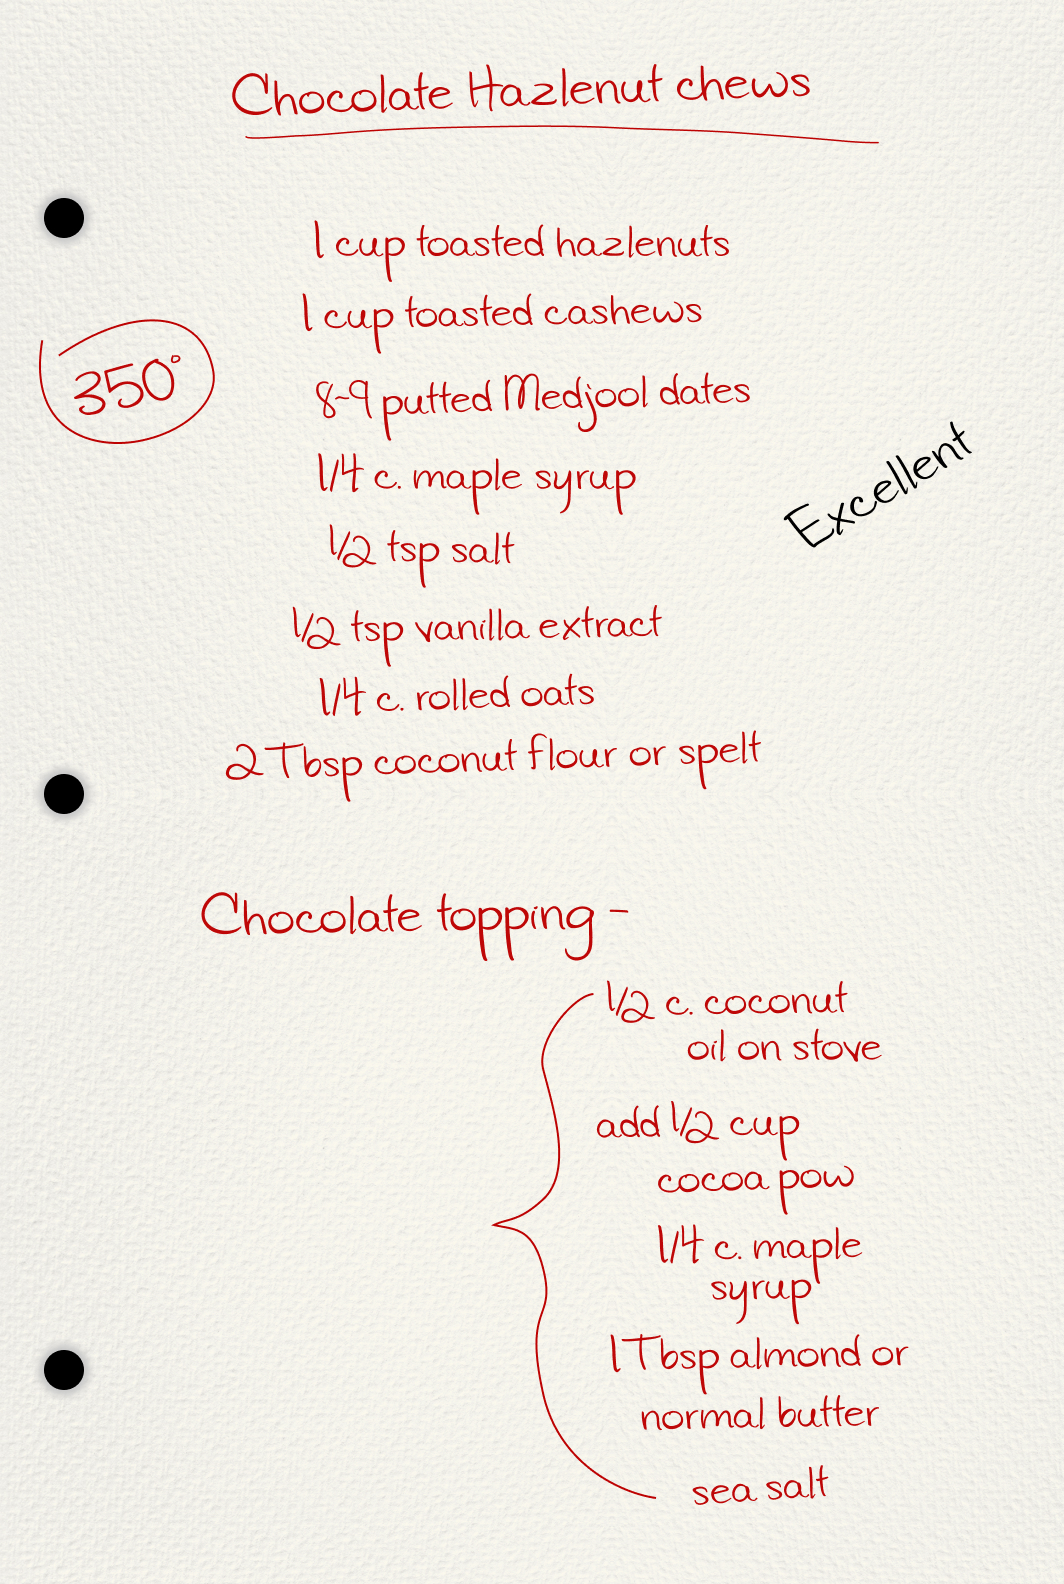 Chocolate Hazlenut chews
1 cup toasted hazlenuts
1 cup toasted cashews
350°
8-9 putted Medjool dates
1/4 c. maple syrup
Excellent
1/2 tsp salt
1/2 tsp vanilla extract
1/4 c. rolled oats
2 Tbsp coconut flour or spelt
Chocolate topping -
1/2 c. coconut
oil on stove
add 1/2 cup
cocoa pow
1/4 c. maple
syrup
1 Tbsp almond or
normal butter
sea salt